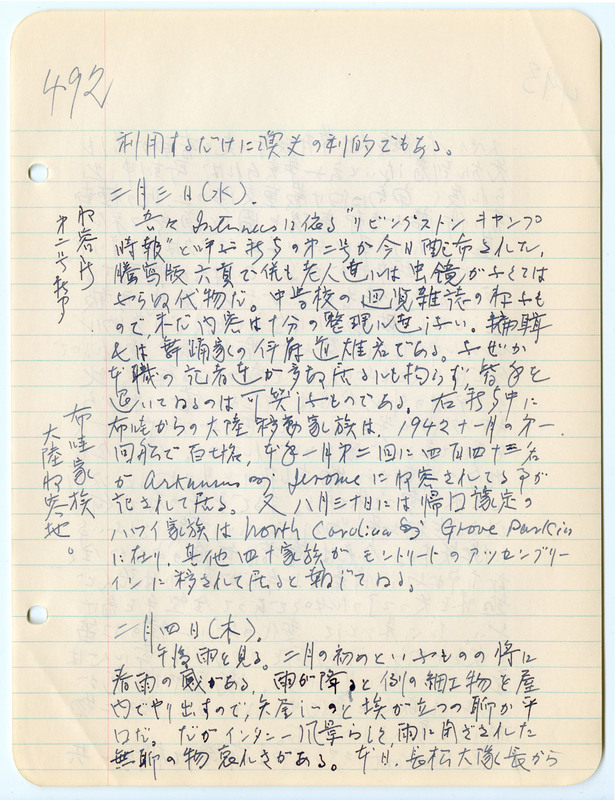 492
利用するだけに澳夫の利的でもある。
二月三日(水)。
収容所
第二号新聞
吾々Interneesに依る"リビングストン キャンプ
時報"と呼ぶ新聞の第二号が今日配布された、
謄写版六頁で僅も老人達には虫鏡がなくては
ならぬ代物だ。中学校の回覧雑誌の様なも
ので、未だ内容は十分の整理は無い。編輯
長は舞踊家の伊藤道雄君である。なぜか
本職の記者連が多数居るにも拘らず皆手を
退いてゐるのは可笑なものである。右新聞中に
布哇家族
大陸収容地。
布哇からの大陸移動家族は、1942十一月の第一
回船で百七名、本年一月第二回に四百四十三名
が Arkansas の Jerome に収容されてる事が
記されて居る。又八月三十日には帰国予定の
ハワイ家族は North Carolina の Grove Park in
に在り、其他四十家族がモントリートのアッセンブリー
インに移されて居ると報じてゐる。
二月四日(木)。
午後雨を見る。二月の初めといふものの将に
春雨の感がある。雨が降ると、例の細工物を屋
内でやり出すので、矢釜しいのと埃が立つの聊か平
口だ。だがインタニー風景らしく、雨に閉ざされた
無聊の物哀れさがある。本日、長松大隊長から